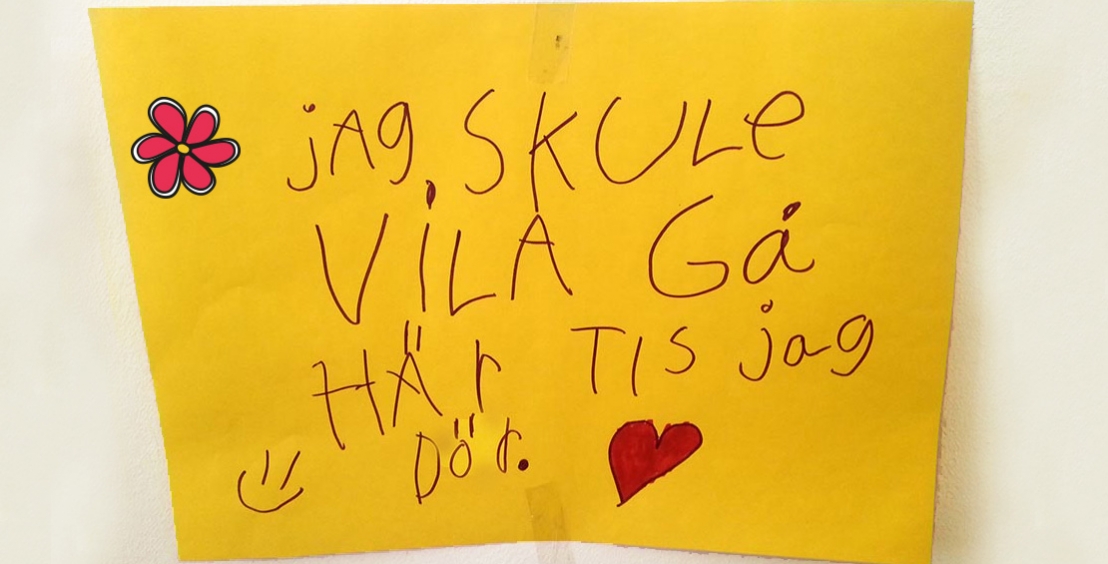 jAg SKULe
VILA Gå
HÄr TIS jag
Dör.